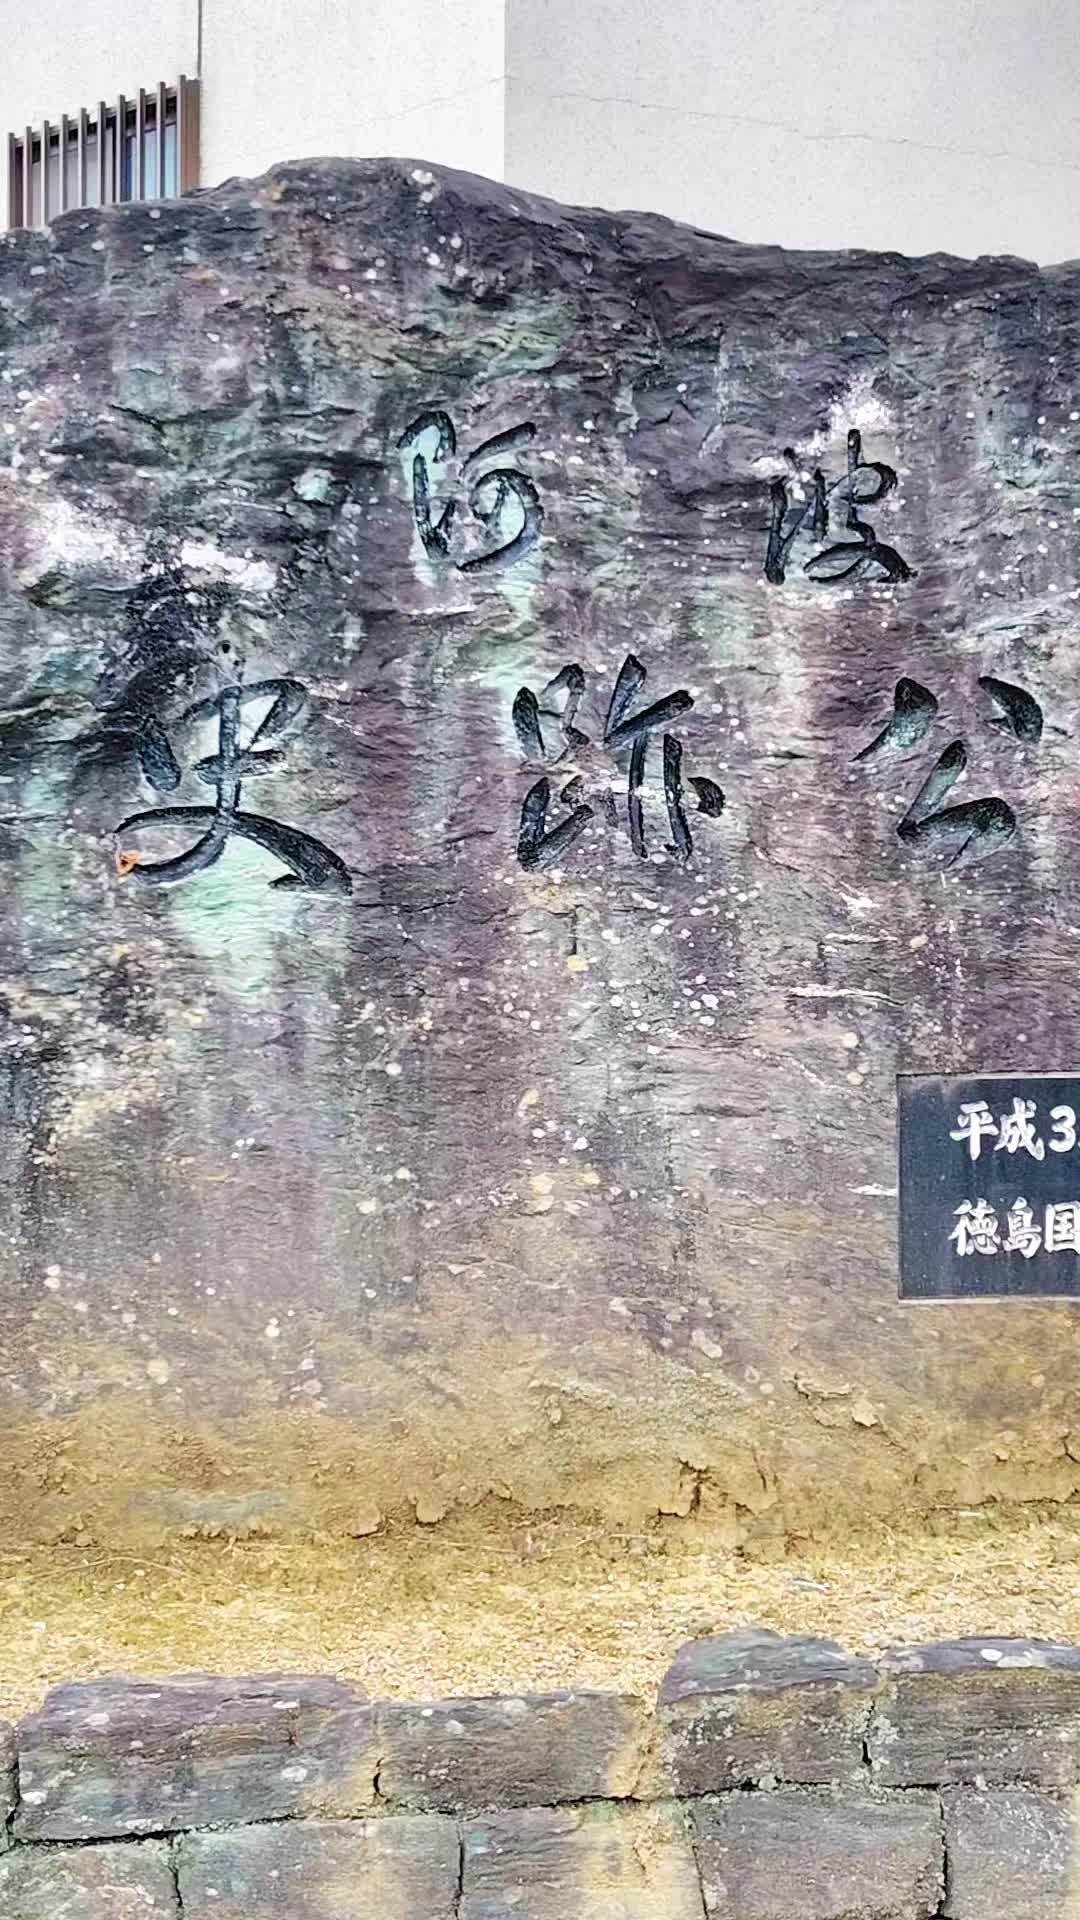 阿波
史跡公
平成3
徳島国